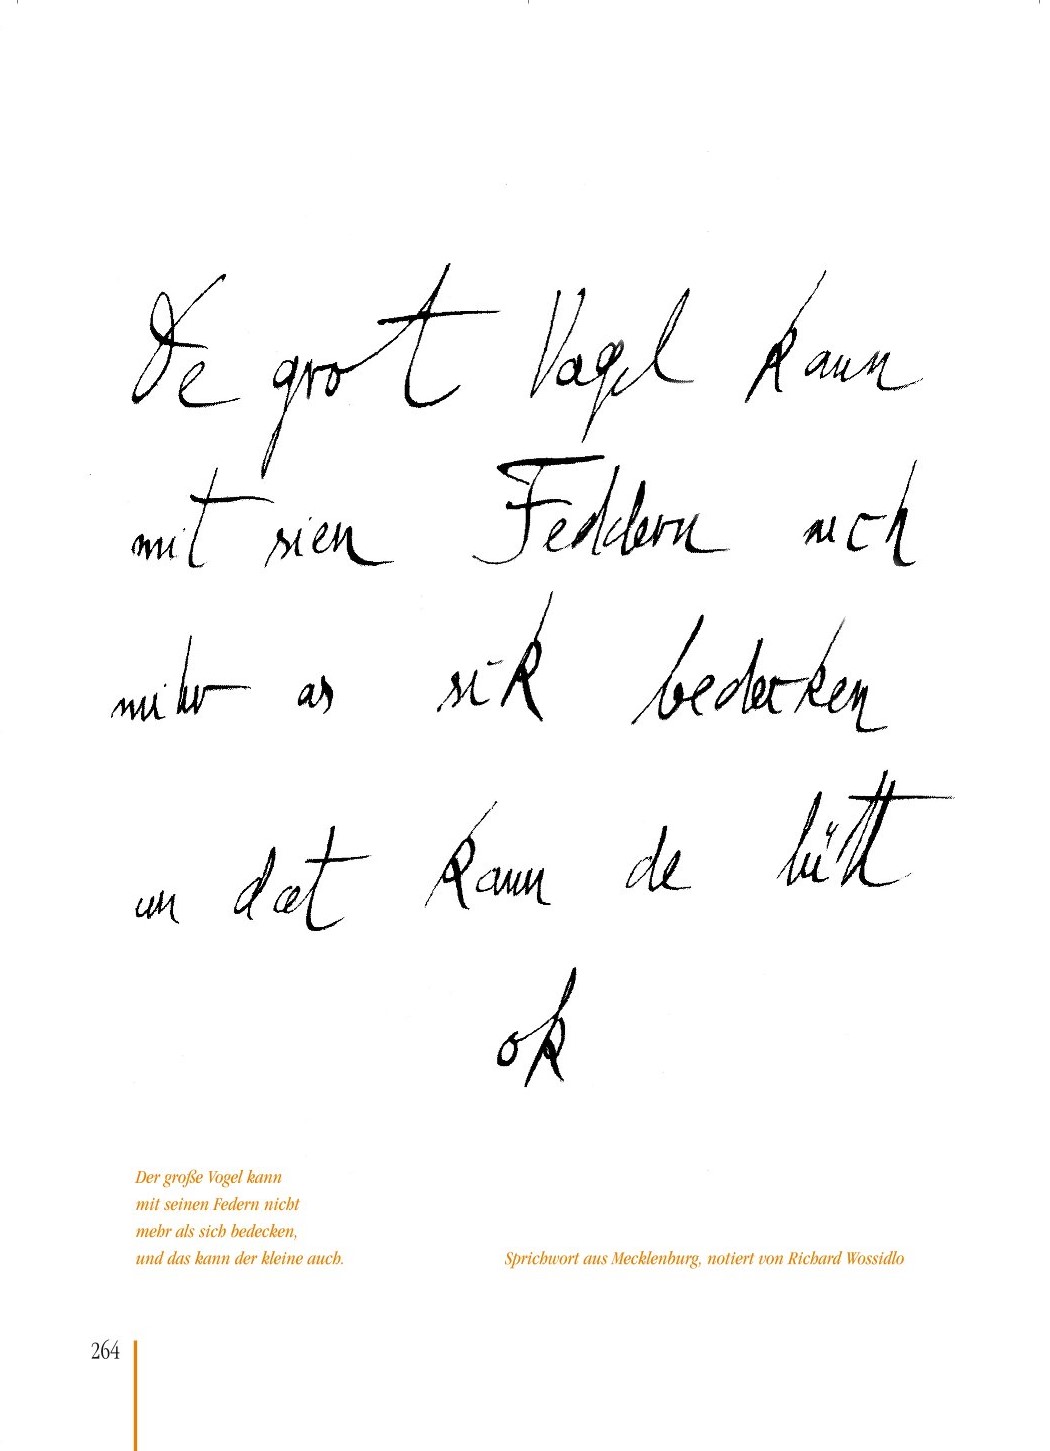 De grot Vagel kann
mit sien Feddern nich
mihr as sik bedecken
un dat kann de lütt
ok
Der große Vogel kann
mit seinen Federn nicht
mehr als sich bedecken,
und das kann der kleine auch.
Sprichwort aus Mecklenburg, notiert von Richard Wossidlo
264